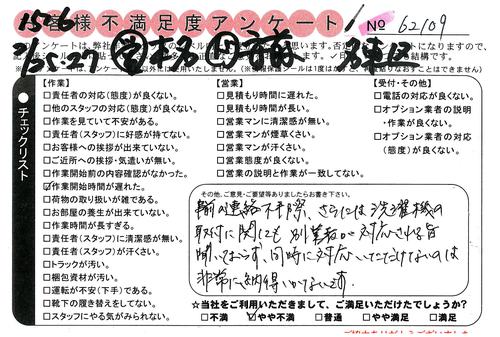 お客様不満足度アンケート！
№ 62109
【作業】
□責任者の対応(態度)が良くない。
□他のスタッフの対応(態度)が良くない。
□作業を見ていて不安がある。
□責任者(スタッフ)に好感が持てない。
□お客様への挨拶が出来ていない。
□ご近所への挨拶・気遣いが無い。
□作業開始前の内容確認がなかった。
☑作業開始時間が遅れた。
□荷物の取り扱いが雑である。
□お部屋の養生が出来ていない。
□作業時間が長すぎる。
□責任者(スタッフ)に清潔感が無い。
□責任者(スタッフ)が汗くさい。
□トラックが汚い。
□梱包資材が汚い。
□運転が不安(下手)である。
□靴下の履き替えをしてない。
□スタッフにやる気がみられない。
【営業】
□見積もり時間に遅れた。
□見積もり時間が長い。
□営業マンに清潔感が無い。
□営業マンが煙草くさい。
□営業マンが汗くさい。
□営業態度が良くない。
□営業の説明と作業が一致してない。
【受付・その他】
□電話の対応が良くない。
□オプション業者の説明
・作業が良くない。
□オプション業者の対応
(態度)が良くない。
●チェックリスト
その他、ご意見・ご要望等ありましたらお書き下さい。
取付に関しても別業者が対応される旨
聞いておらず、同時に対応いただけないのは
非常に納得いかないです。
☆当社をご利用いただきまして、ご満足いただけたでしょうか？
□不満 ☑やや不満 □普通 □やや満足 □満足